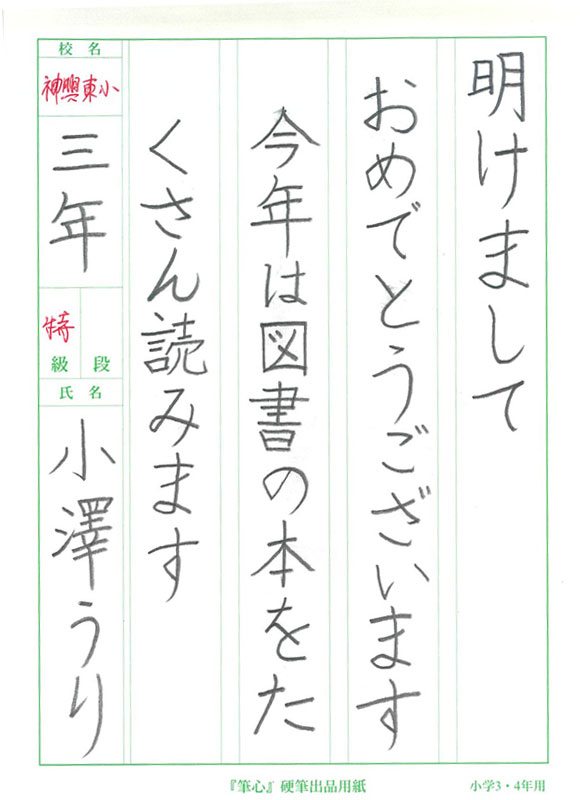 明けまして
おめでとうございます
今年は図書の本をた
くさん読みます
校名
神興東小
三年
特
級 段
氏名
小澤うり
『筆心』硬筆出品用紙
小学3・4年用